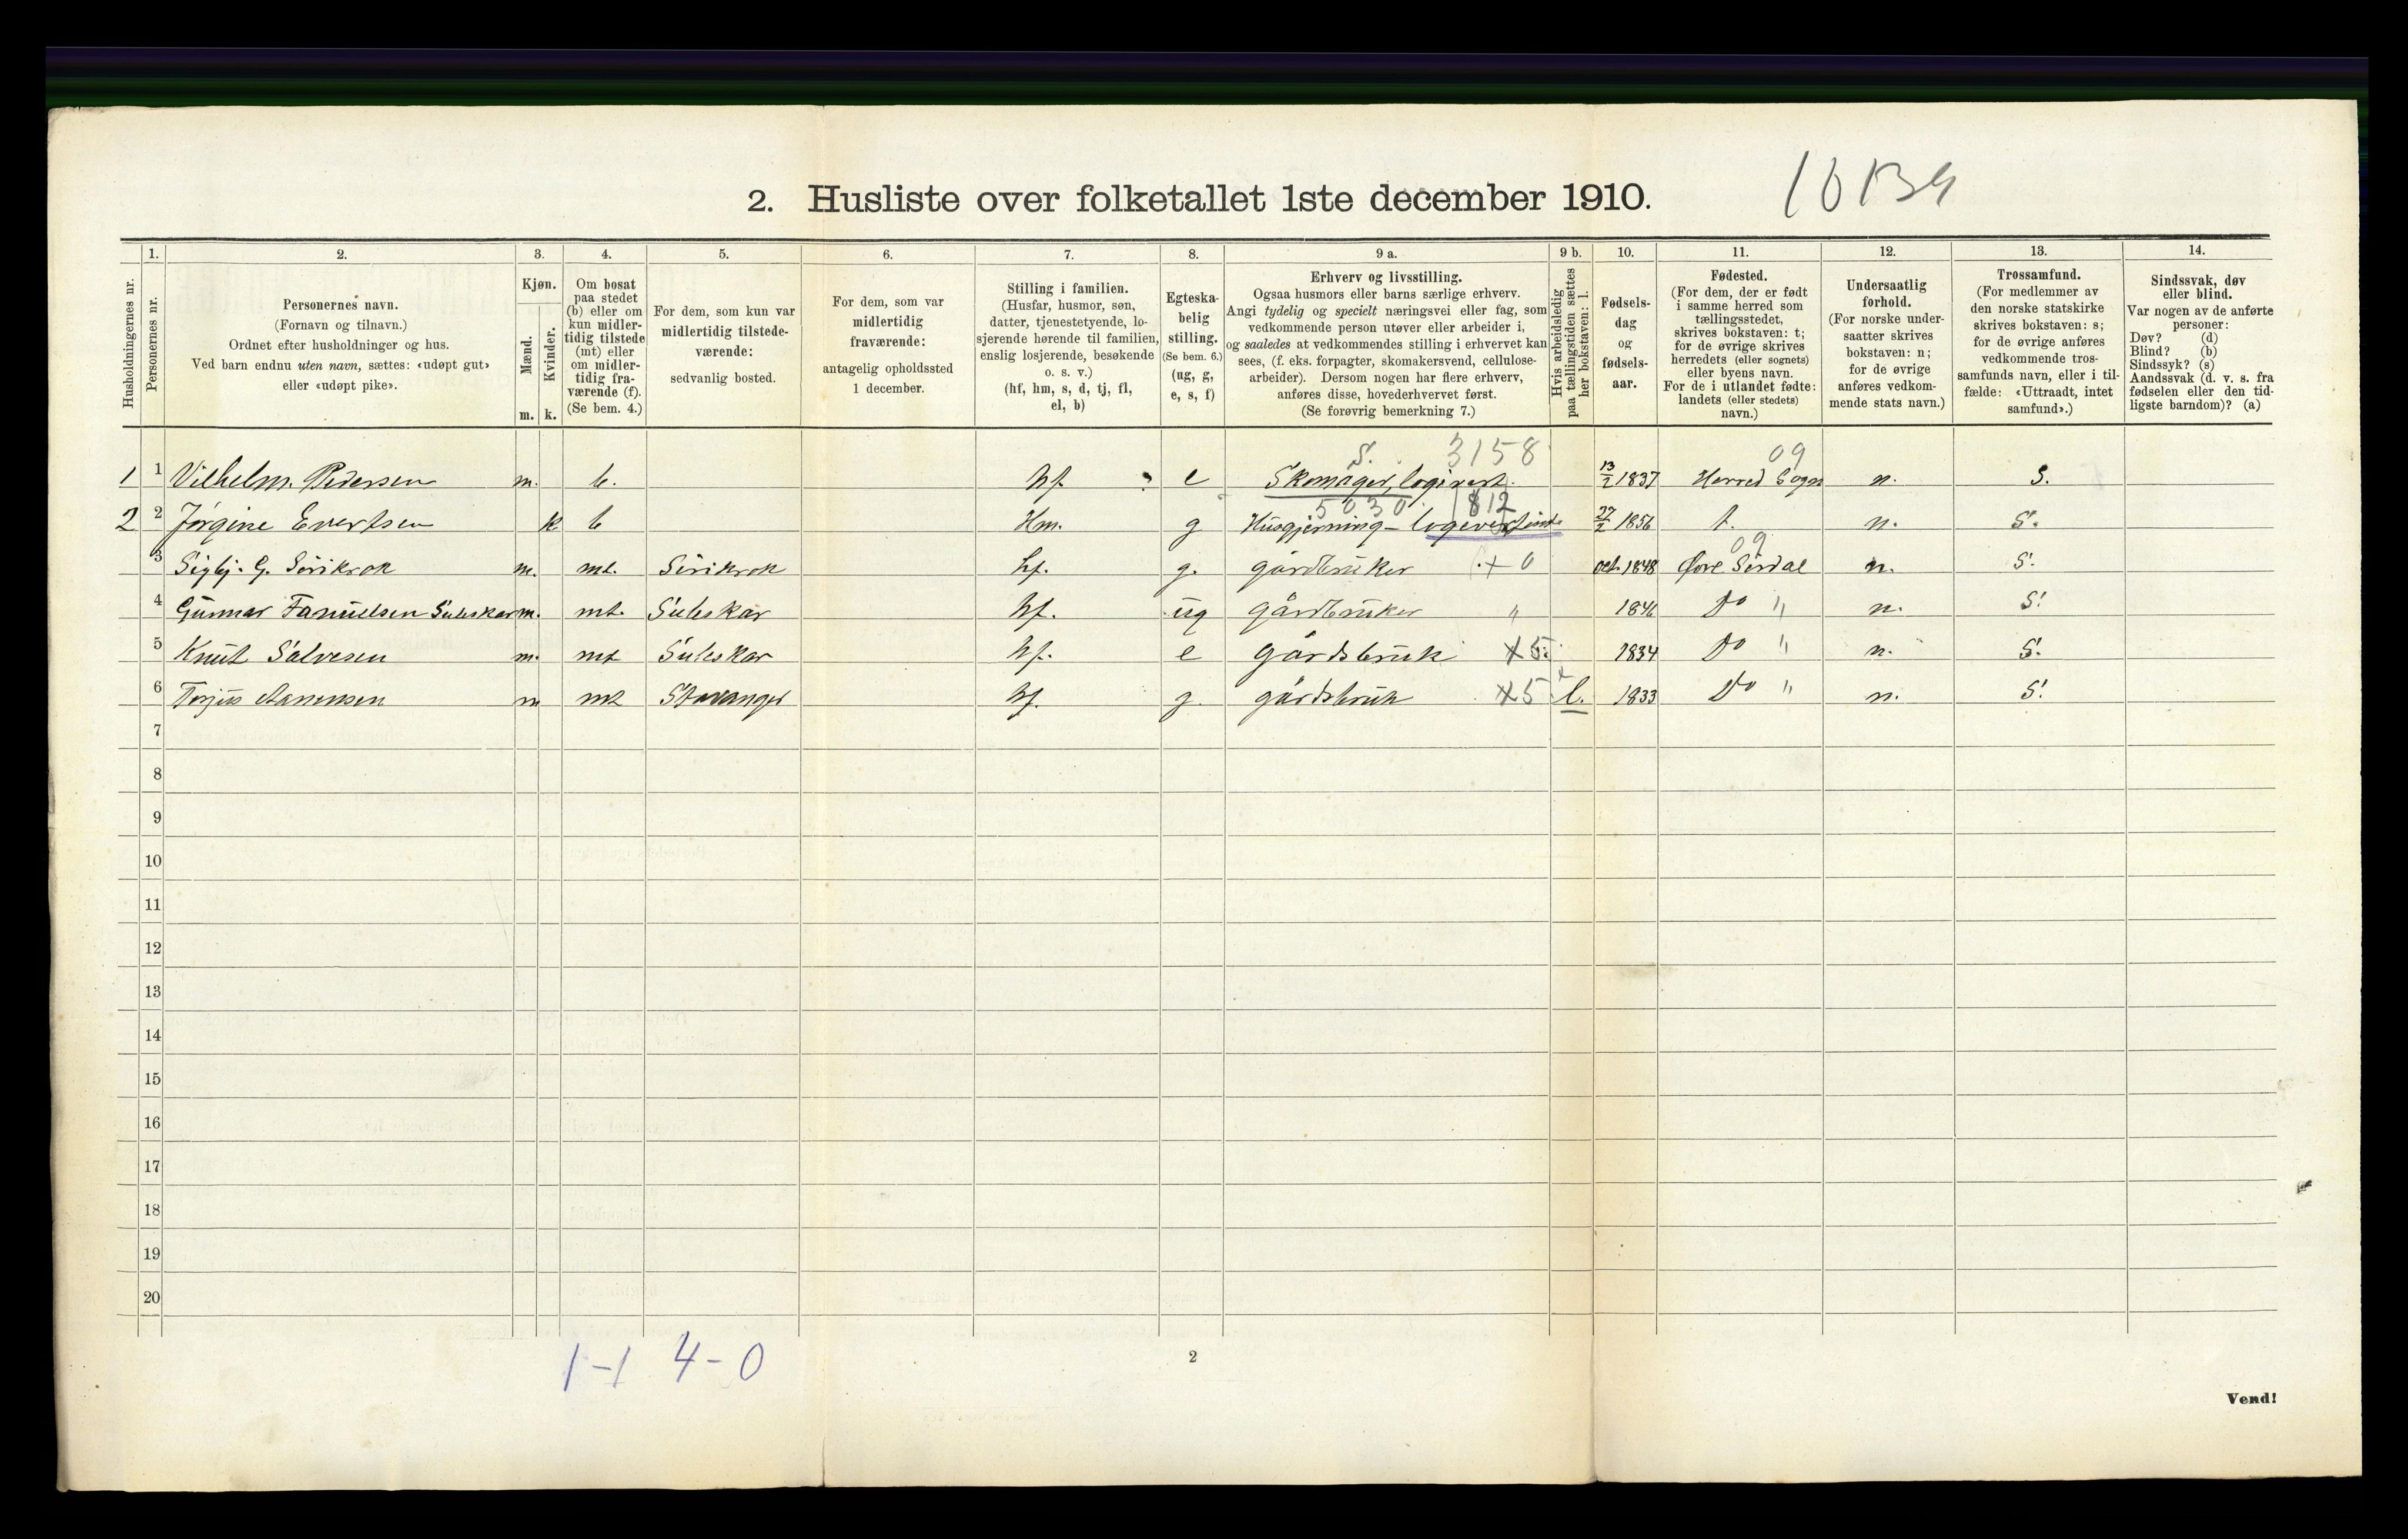 2. Husliste over folketallet 1ste december 1910.
Husholdningernes nr.
1.
Personernes nr.
2.
Personernes navn.
(Fornavn og tilnavn.)
Ordnet efter husholdninger og hus.
Ved barn endnu uten navn, sættes: «udøpt gut»
eller «udøpt pike».
3.
Kjøn.
Mænd.
m.
Kvinder.
k.
4.
Om bosat
paa stedet
(b) eller om
kun midler-
tidig tilstede
(mt) eller
om midler-
tidig fra-
værende (f).
(Se bem. 4.)
5.
For dem, som kun var
midlertidig tilstede-
værende:
sedvanlig bosted.
6.
For dem, som var
midlertidig
fraværende:
antagelig opholdssted
1 december.
7.
Stilling i familien.
(Husfar, husmor, søn,
datter, tjenestetyende, lo-
sjerende hørende til familien,
enslig losjerende, besøkende
o. s. v.)
(hf, hm, s, d, tj, fl,
el, b)
8.
Egteska-
belig
stilling.
(Se bem. 6.)
(ug, g,
e, s, f)
9 a.
Erhverv og livsstilling.
Ogsaa husmors eller barns særlige erhverv.
Angi tydelig og specielt næringsvei eller fag, som
vedkommende person utøver eller arbeider i,
og saaledes at vedkommendes stilling i erhvervet kan
sees, (f. eks. forpagter, skomakersvend, cellulose-
arbeider). Dersom nogen har flere erhverv,
anføres disse, hovederhvervet først.
(Se forøvrig bemerkning 7.)
9 b.
Hvis arbeidsledig
paa tællingstiden sættes
her bokstaven: l.
10.
Fødsels-
dag
og
fødsels-
aar.
11.
Fødested.
(For dem, der er født
i samme herred som
tællingsstedet,
skrives bokstaven: t;
for de øvrige skrives
herredets (eller sognets)
eller byens navn.
For de i utlandet fødte:
landets (eller stedets)
navn.)
12.
Undersaatlig
forhold.
(For norske under-
saatter skrives
bokstaven: n;
for de øvrige
anføres vedkom-
mende stats navn.)
13.
Trossamfund.
(For medlemmer av
den norske statskirke
skrives bokstaven: s;
for de øvrige anføres
vedkommende tros-
samfunds navn, eller i til-
fælde: «Uttraadt, intet
samfund».)
14.
Sindssvak, døv
eller blind.
Var nogen av de anførte
personer:
Døv? (d)
Blind? (b)
Sindssyk? (s)
Aandssvak (d. v. s. fra
fødselen eller den tid-
ligste barndom)? (a)
S. 3158 09
1 1 Vilhelm Pedersen m. b. hf. e Skomager, logivert. 13/2 1837 Herred Sogn n. S.
5030 812
2 2 Jørgine Evertsen k b Hm. g Husgjerning - logevertinde 27/2 1856 t. n. S.
09
3 Sigbj. G. Sirikrok m. mt. Sirikrok hf. g. gårdbruker + 0 oct. 1848 Øvre Sirdal n. S.
4 Gunnar Fanuelsen Suleskar m. mt. Suleskar hf. ug gårdbruker " 1846 Do " n. S.
5 Knut Salvesen m. mt Suleskar hf. e gårdsbruk X5 1834 Do " n. S.
6 Terjus Aanensen m mt Stavanger hf. g. gårdsbruk X5 l. 1833 Do " n. S.
7
8
9
10
11
12
13
14
15
16
17
18
19
20
1-1 4-0
2
Vend!